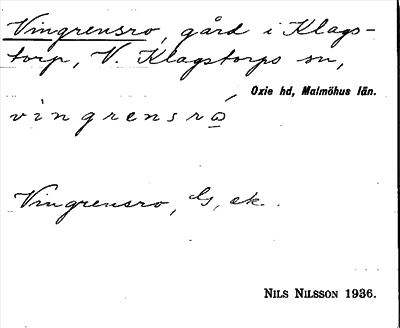 Vingrensro, gård i Klags-
torp, V. Klagstorps sn,
Oxie hd, Malmöhus län.
vingrensró
Vingrensro, G, ek.
NILS NILSSON 1936.